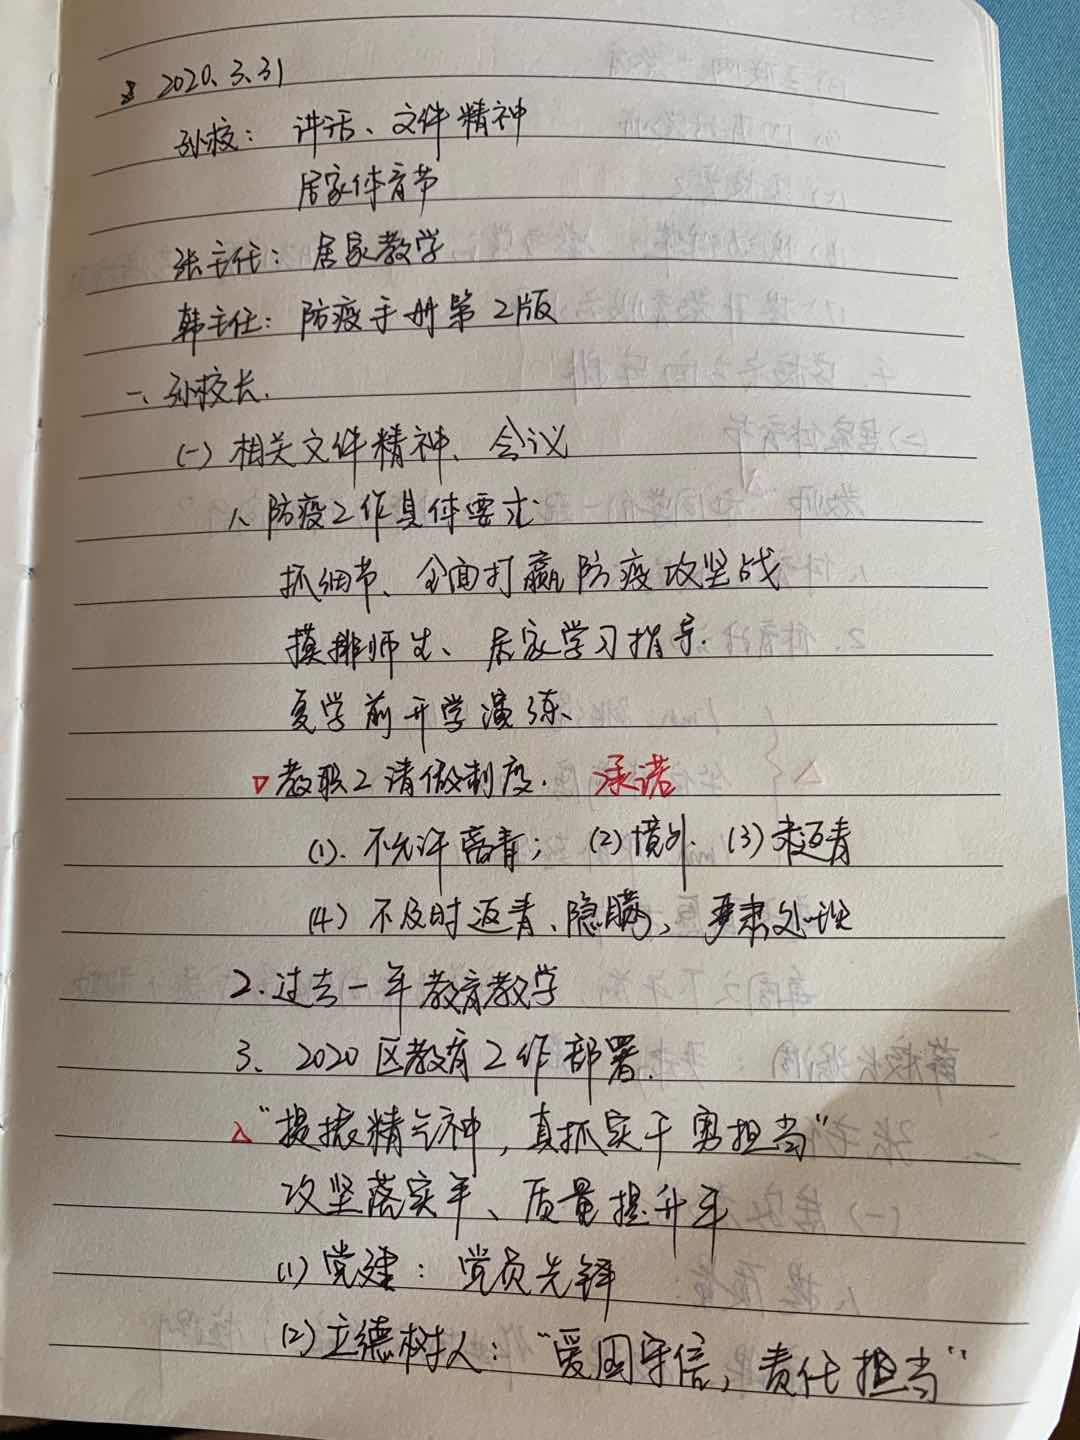 2020.3.31
孙校：讲话、文件精神
居家体育节
张主任：居家教学
韩主任：防疫手册第2版
一、孙校长.
(一)相关文件精神、会议
1、防疫工作具体要求
抓细节、全面打赢防疫攻坚战
摸排师生、居家学习指导.
复学前开学演练、
▽教职工请假制度. 承诺
(1).不允许离青；(2)境外.(3)未返青
(4)不及时返青、隐瞒，严肃处理
2.过去一年教育教学
3、2020区教育工作部署.
△“提振精气神，真抓实干勇担当”
攻坚落实年、质量提升年
(1)党建：党员先锋
(2)立德树人：“爱国守信，责任担当”